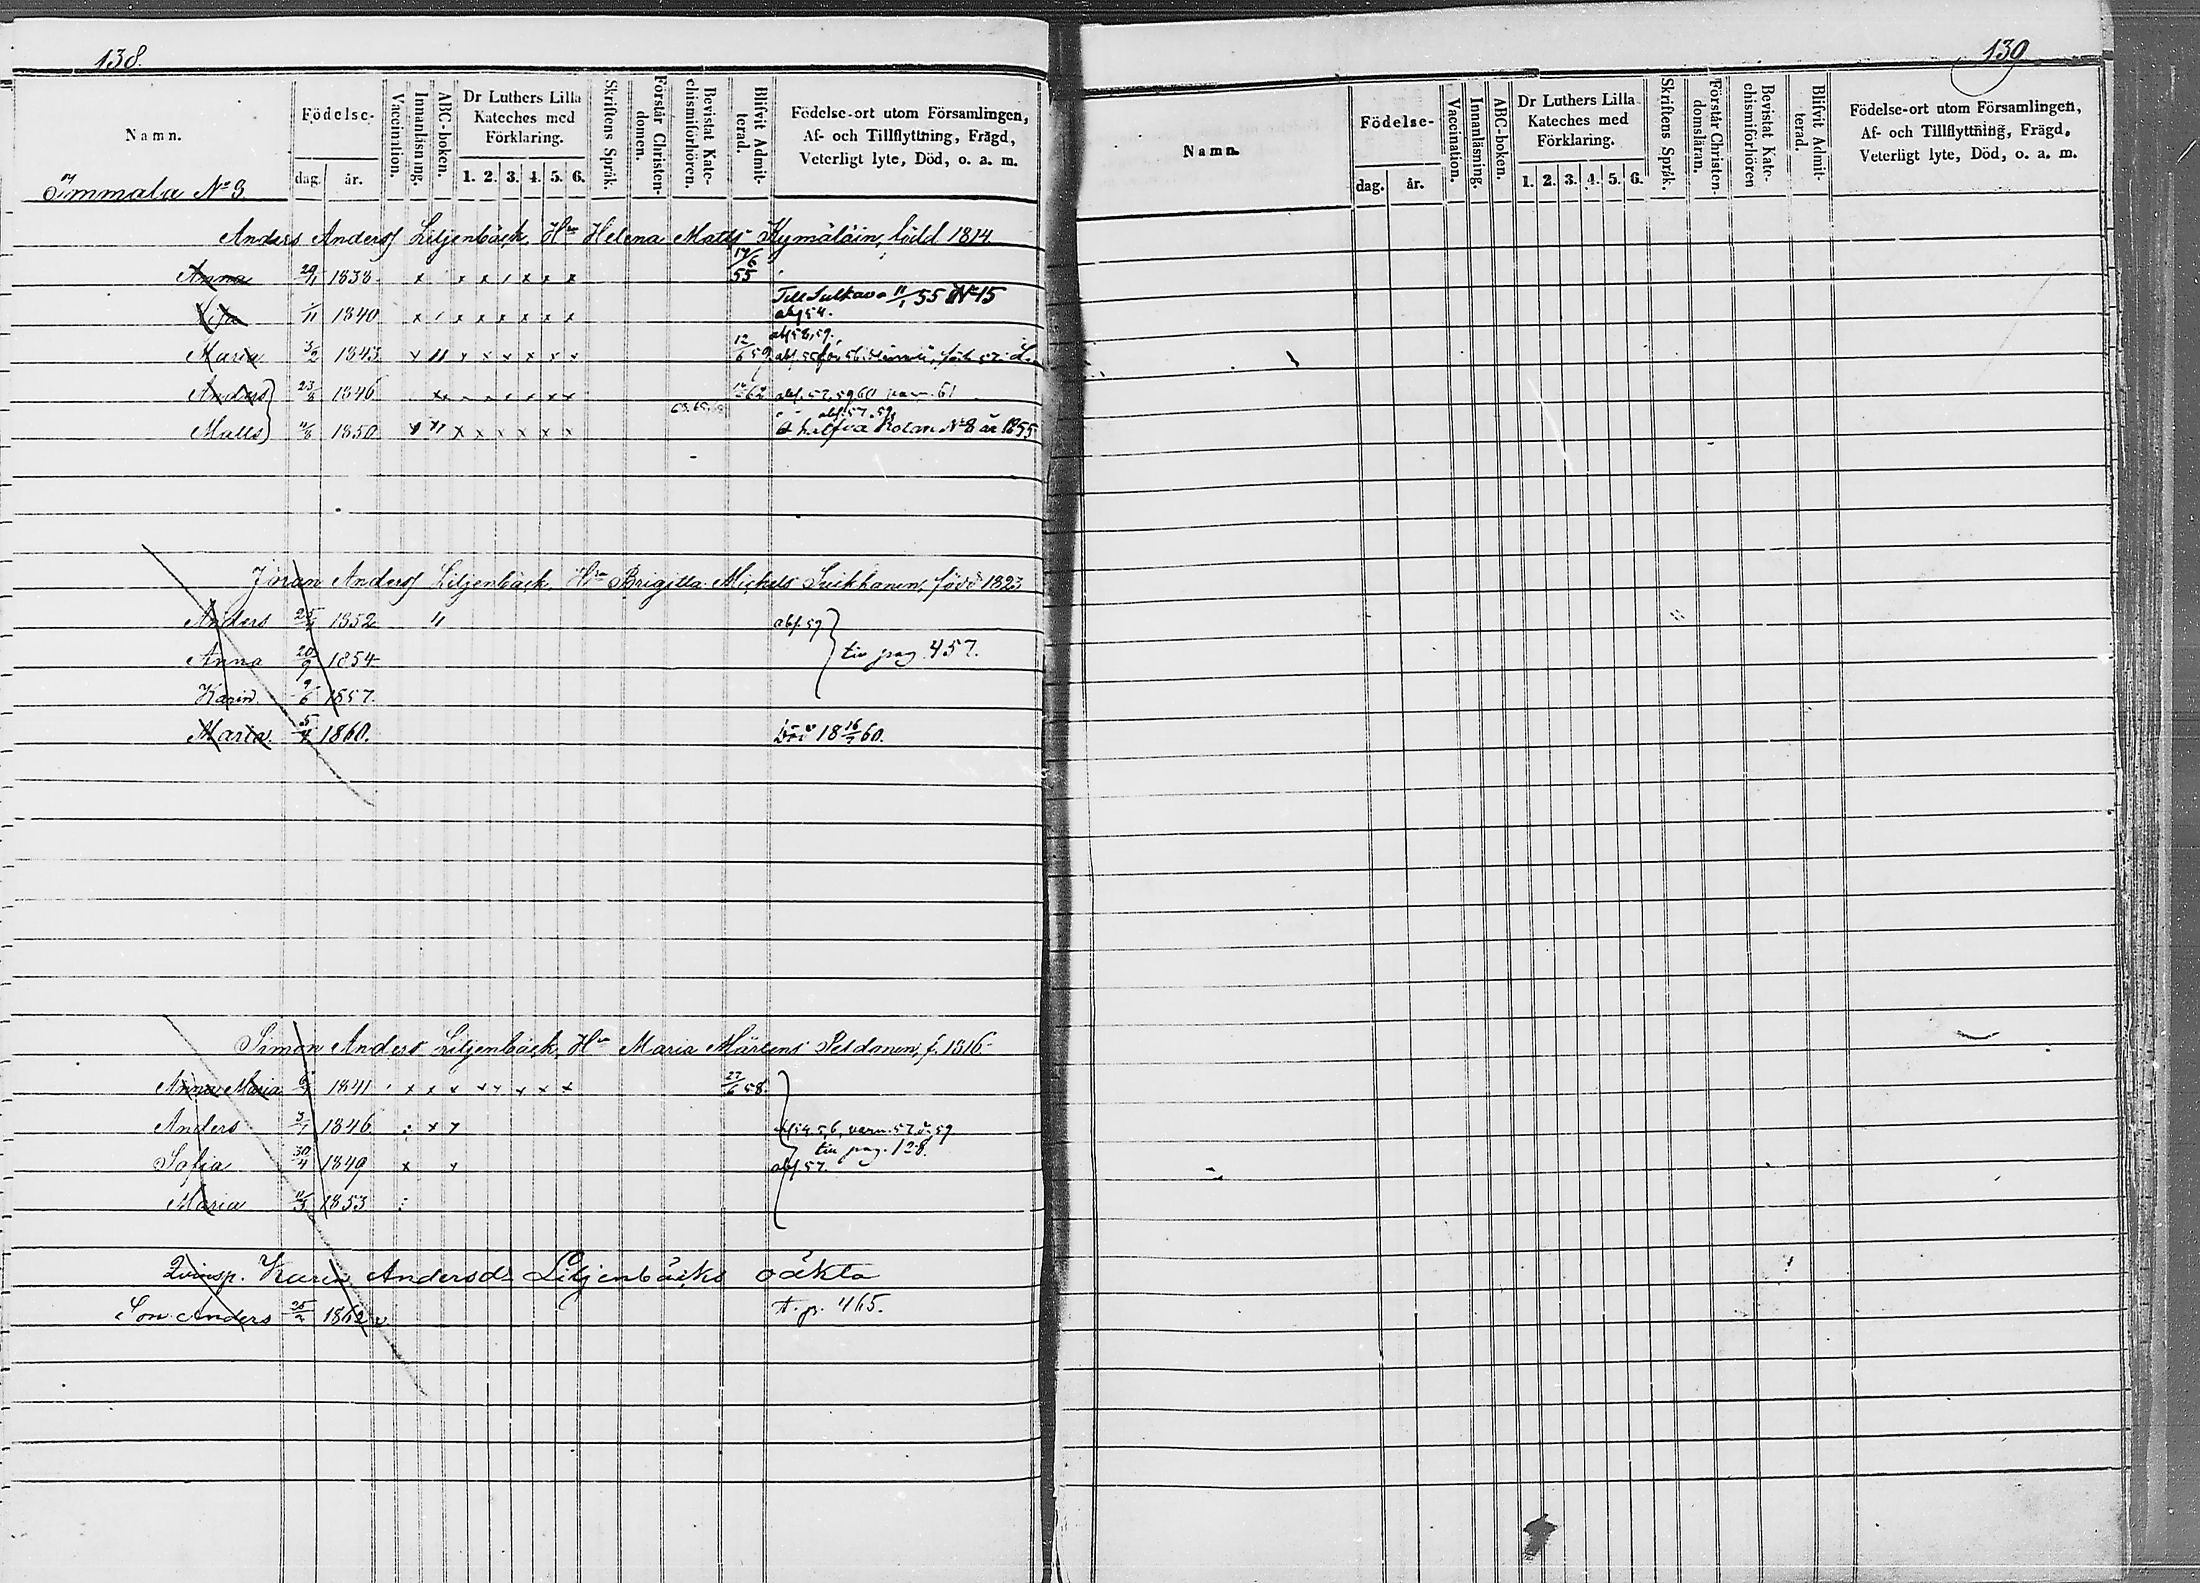 138.
Namn.
Födelse-
dag. år.
Vaccination.
Innanläsning.
ABC-boken.
Dr Luthers Lilla Kateches med Förklaring.
1. 2. 3. 4. 5. 6.
Skriftens Språk.
Förstår Christendomen.
Bevistat Katechismiförhören.
Blifvit Admitterad.
Födelse-ort utom Församlingen, Af- och Tillflyttning, Frägd, Veterligt lyte, Död, o. a. m.
Immala No 3.
Anders Anders Liljenbäck, Hu Helena Matts Kymäläin, född 1814.
Anna 29/1 1838 x x x x x x 17/6 55
Till Sulkava 11/1 55 No 15
1/11 1840 x x x x x x x abs 54.
abs 58, 59,
Maria 3/2 1843 x " x x x x x x 12/6 59
Anders 23/8 1846 62 abs. 57, 59, 60 varn. 61
abs. 57, 59,
Matts 11/8 1850 x " x x x x x x No 8 år 1855
Jöran Anders Liljenbäck, Hu Brigitta Michels Suikkanen, född 1823
Anders 1852 " abs. 59
Anna 20/9 1854 till pag. 457.
Karin 9/6 1857.
Maria 1860. Död 18 16/7 60.
Simon Anders Liljenbäck, Hu Maria Mårtens Peldonen, f. 1816
Anna Maria 1841 x x x x x x x x 27/6 58.
Anders 3/1 1846 x x abs 54, 56, varn. 57, 59
till pag. 128.
Sofia 30/4 1849 x x abs. 57.
Maria 11/3 1853
Qvinsp. Karin Andersdr Liljenbäcks oäkta
Son Anders 25/2 1862 t. p. 465.
139
Namn.
Födelse-
dag. år.
Vaccination.
Innanläsning.
ABC-boken.
Dr Luthers Lilla Kateches med Förklaring.
1. 2. 3. 4. 5. 6.
Skriftens Språk.
Förstår Christendomsläran.
Bevistat Katechismiförhören
Blifvit Admitterad.
Födelse-ort utom Församlingen, Af- och Tillflyttning, Frägd, Veterligt lyte, Död, o. a. m.